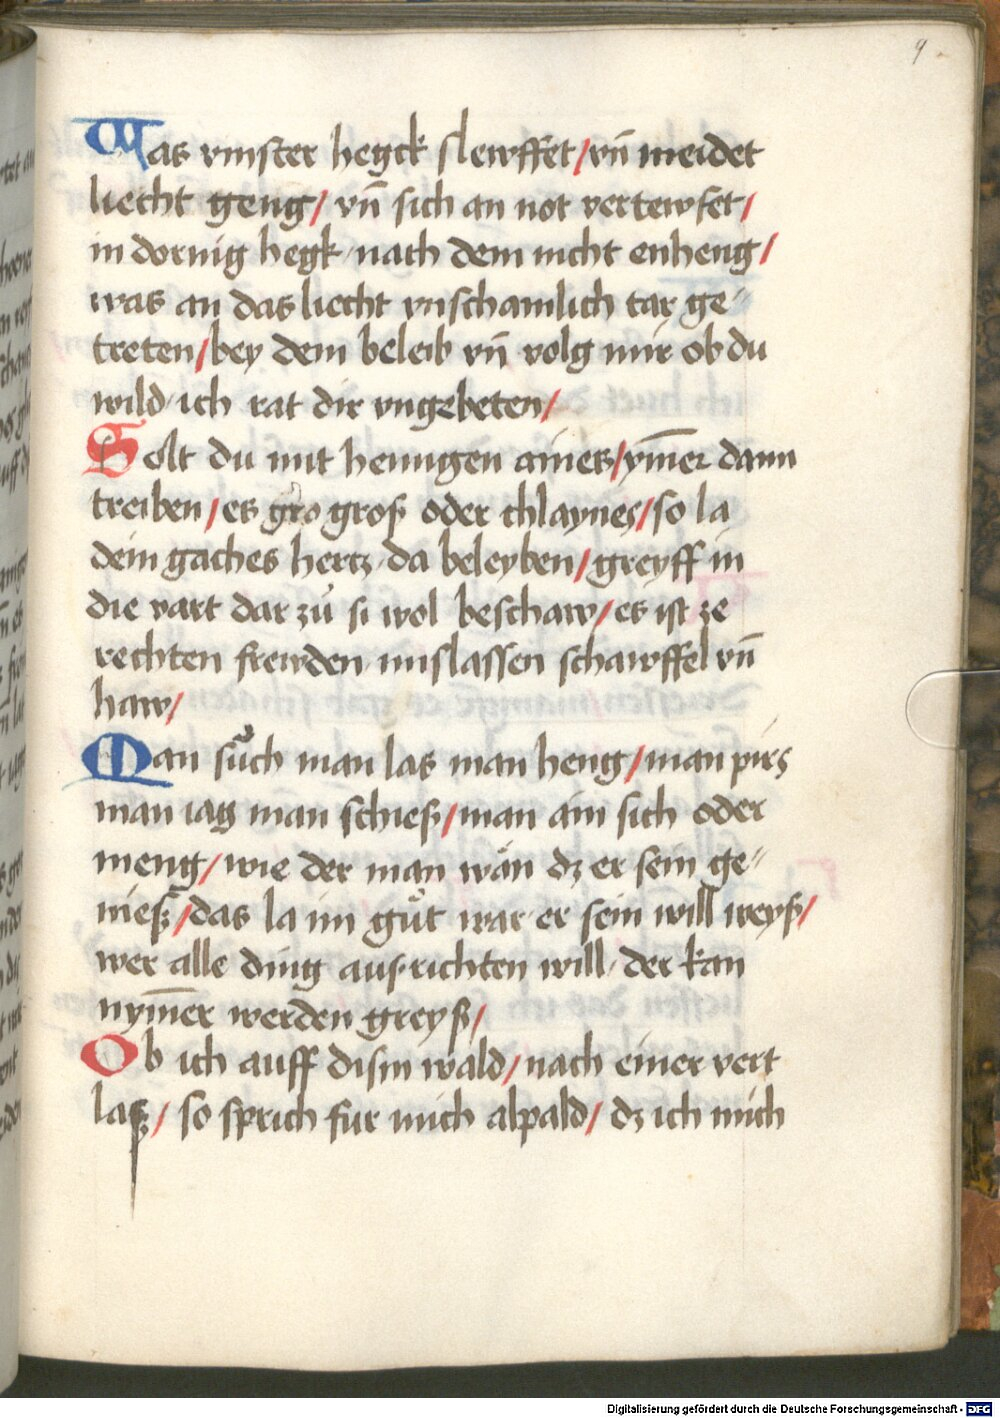 9
Was vinster hegck slewffet / vn̄ meidet
liecht geng / vn̄ sich an not vertewfet /
in dornig hegk nach dem nicht enheng /
was an das liecht vnschamlich tar ge⸗
treten / bey dem beleib vn̄ volg mir ob du
wild ich rat dir vngebeten /
Solt du mit hennigen aines / ym̄er dann
treiben / es gro gros oder chlaynes / so la
dein gaches hertz da beleyben / greyff in
die vart dar zů si wol beschaw / es ist ze
rechten frewden mislassen schawffel vn̄
haw /
Man sůch man las man heng / man pirs
man iag man schieß / man ain sich oder
meng / wie der man wän dz er sein ge⸗
nieß / das la im gůt war er sein will weyß /
wer alle ding ausrichten will der kan
nym̄er werden greyß /
Ob ich auff dism wald / nach einer vert
laß / so sprich fur mich alpald / dz ich mich
Digitalisierung gefördert durch die Deutsche Forschungsgemeinschaft - DFG